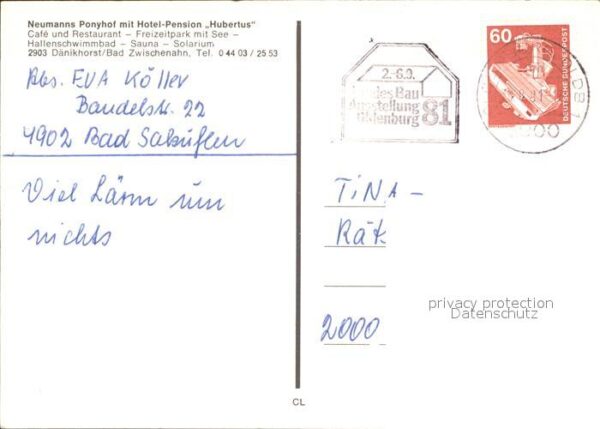 Neumanns Ponyhof mit Hotel-Pension „Hubertus"
Café und Restaurant – Freizeitpark mit See –
Hallenschwimmbad – Sauna – Solarium
2903 Dänikhorst/Bad Zwischenahn, Tel. 0 44 03 / 25 53
Abs. EVA Köller
Bandelstr. 22
4902 Bad Salzuflen
Viel Lärm um
nichts
2.-6.9.
Bau
Ausstellung
Oldenburg 81
60
DEUTSCHE BUNDESPOST
TiNA –
Rät
2000
privacy protection
Datenschutz
CL